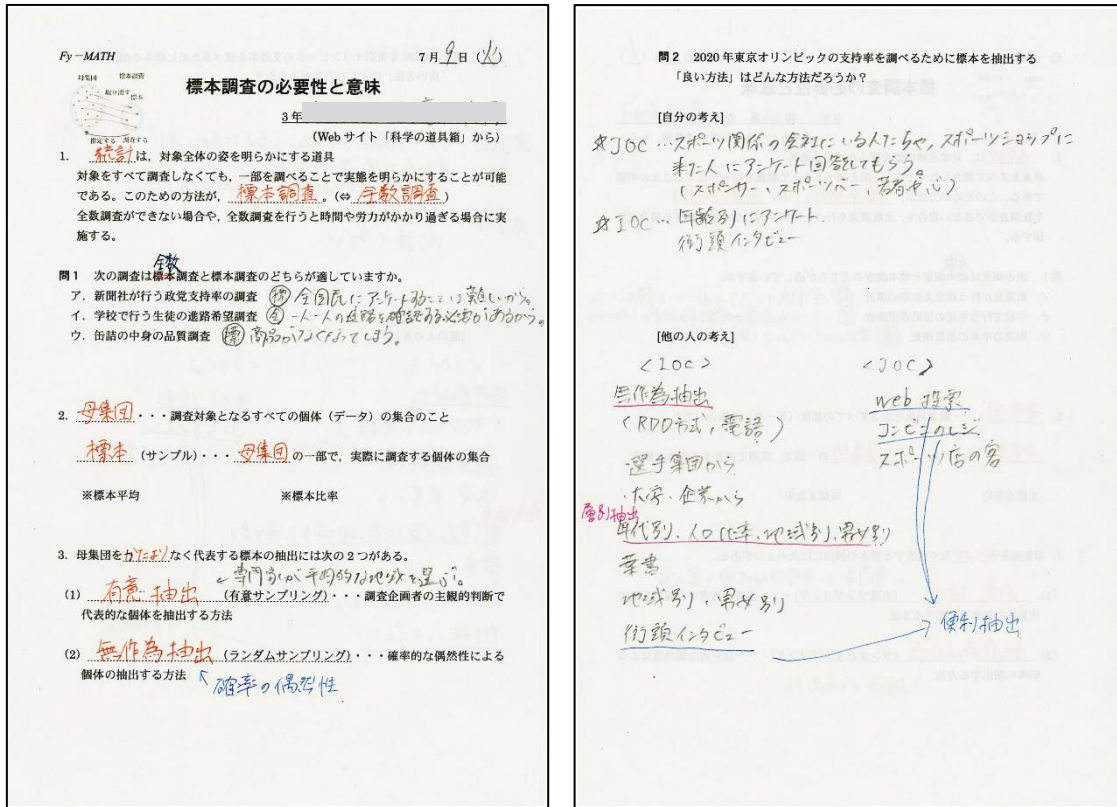 Fy－MATH
7月9日（火）
母集団 標本調査
取り出す 標本
推定する
標本調査の必要性と意味
3年
（Webサイト「科学の道具箱」から）
1. 統計は，対象全体の姿を明らかにする道具
対象をすべて調査しなくても，一部を調べることで実態を明らかにすることが可能
である。このための方法が，標本調査。（⇔ 全数調査）
全数調査ができない場合や，全数調査を行うと時間や労力がかかり過ぎる場合に実
施する。
全数
問1 次の調査は標本調査と標本調査のどちらが適していますか。
ア．新聞社が行う政党支持率の調査 標 全国民にアンケートすることは難しいから。
イ．学校で行う生徒の進路希望調査 全 一人一人の進路を確認する必要があるから。
ウ．缶詰の中身の品質調査 標 商品がなくなってしまう。
2. 母集団・・・調査対象となるすべての個体（データ）の集合のこと
標本（サンプル）・・・母集団の一部で，実際に調査する個体の集合
※標本平均 ※標本比率
3. 母集団をかたよりなく代表する標本の抽出には次の2つがある。
←専門家が平均的な地域を選ぶ。
(1) 有意抽出（有意サンプリング）・・・調査企画者の主観的判断で
代表的な個体を抽出する方法
(2) 無作為抽出（ランダムサンプリング）・・・確率的な偶然性による
個体の抽出する方法
確率の偶然性
問2 2020年東京オリンピックの支持率を調べるために標本を抽出する
「良い方法」はどんな方法だろうか？
[自分の考え]
☆JOC…スポーツ関係の会社にいる人たちや，スポーツショップに
来た人にアンケート回答してもらう。
（スポンサー，スポーツバー，若者中心）
☆IOC…年齢別にアンケート．
街頭インタビュー
[他の人の考え]
＜IOC＞
無作為抽出
（RDD方式，電話）
選手集団から
・大学・企業から
層別抽出
年代別，人口比率，地域別，男女別
葉書
地域別・男女別
街頭インタビュー
＜JOC＞
web 投票
コンビニのレジ
スポーツ店の客
便利抽出